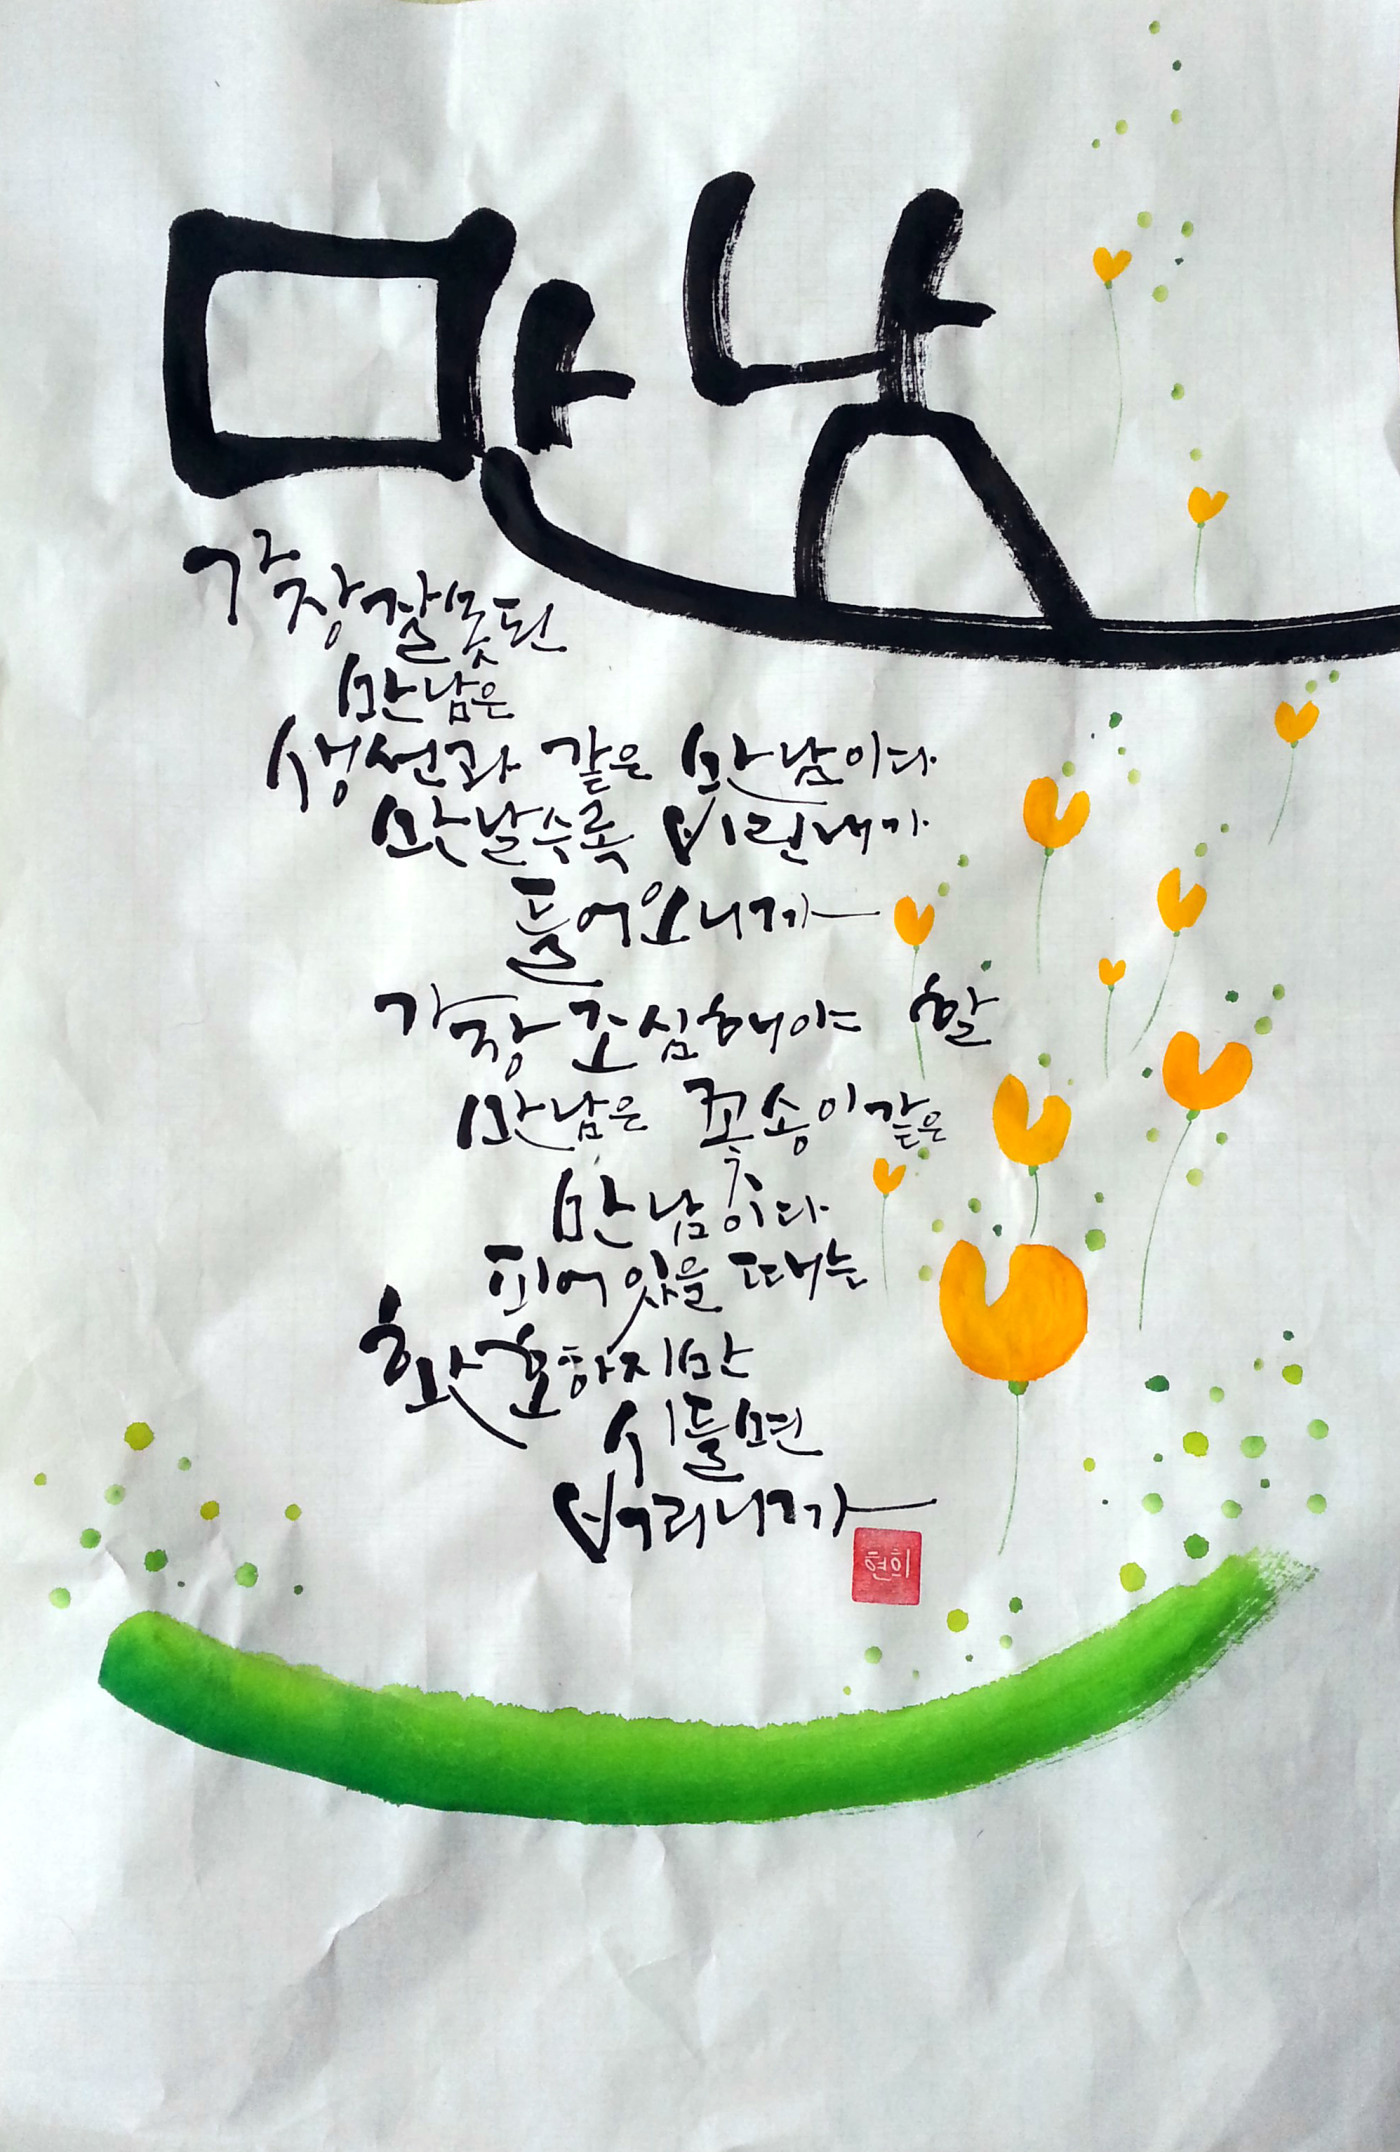 만남
가장 잘못된
만남은
생선과 같은 만남이다
만날수록 비린내가
들어오니까
가장 조심해야 할
만남은 꽃송이 같은
만남이다
피어 있을 때는
환호하지만
시들면
버리니까
현희